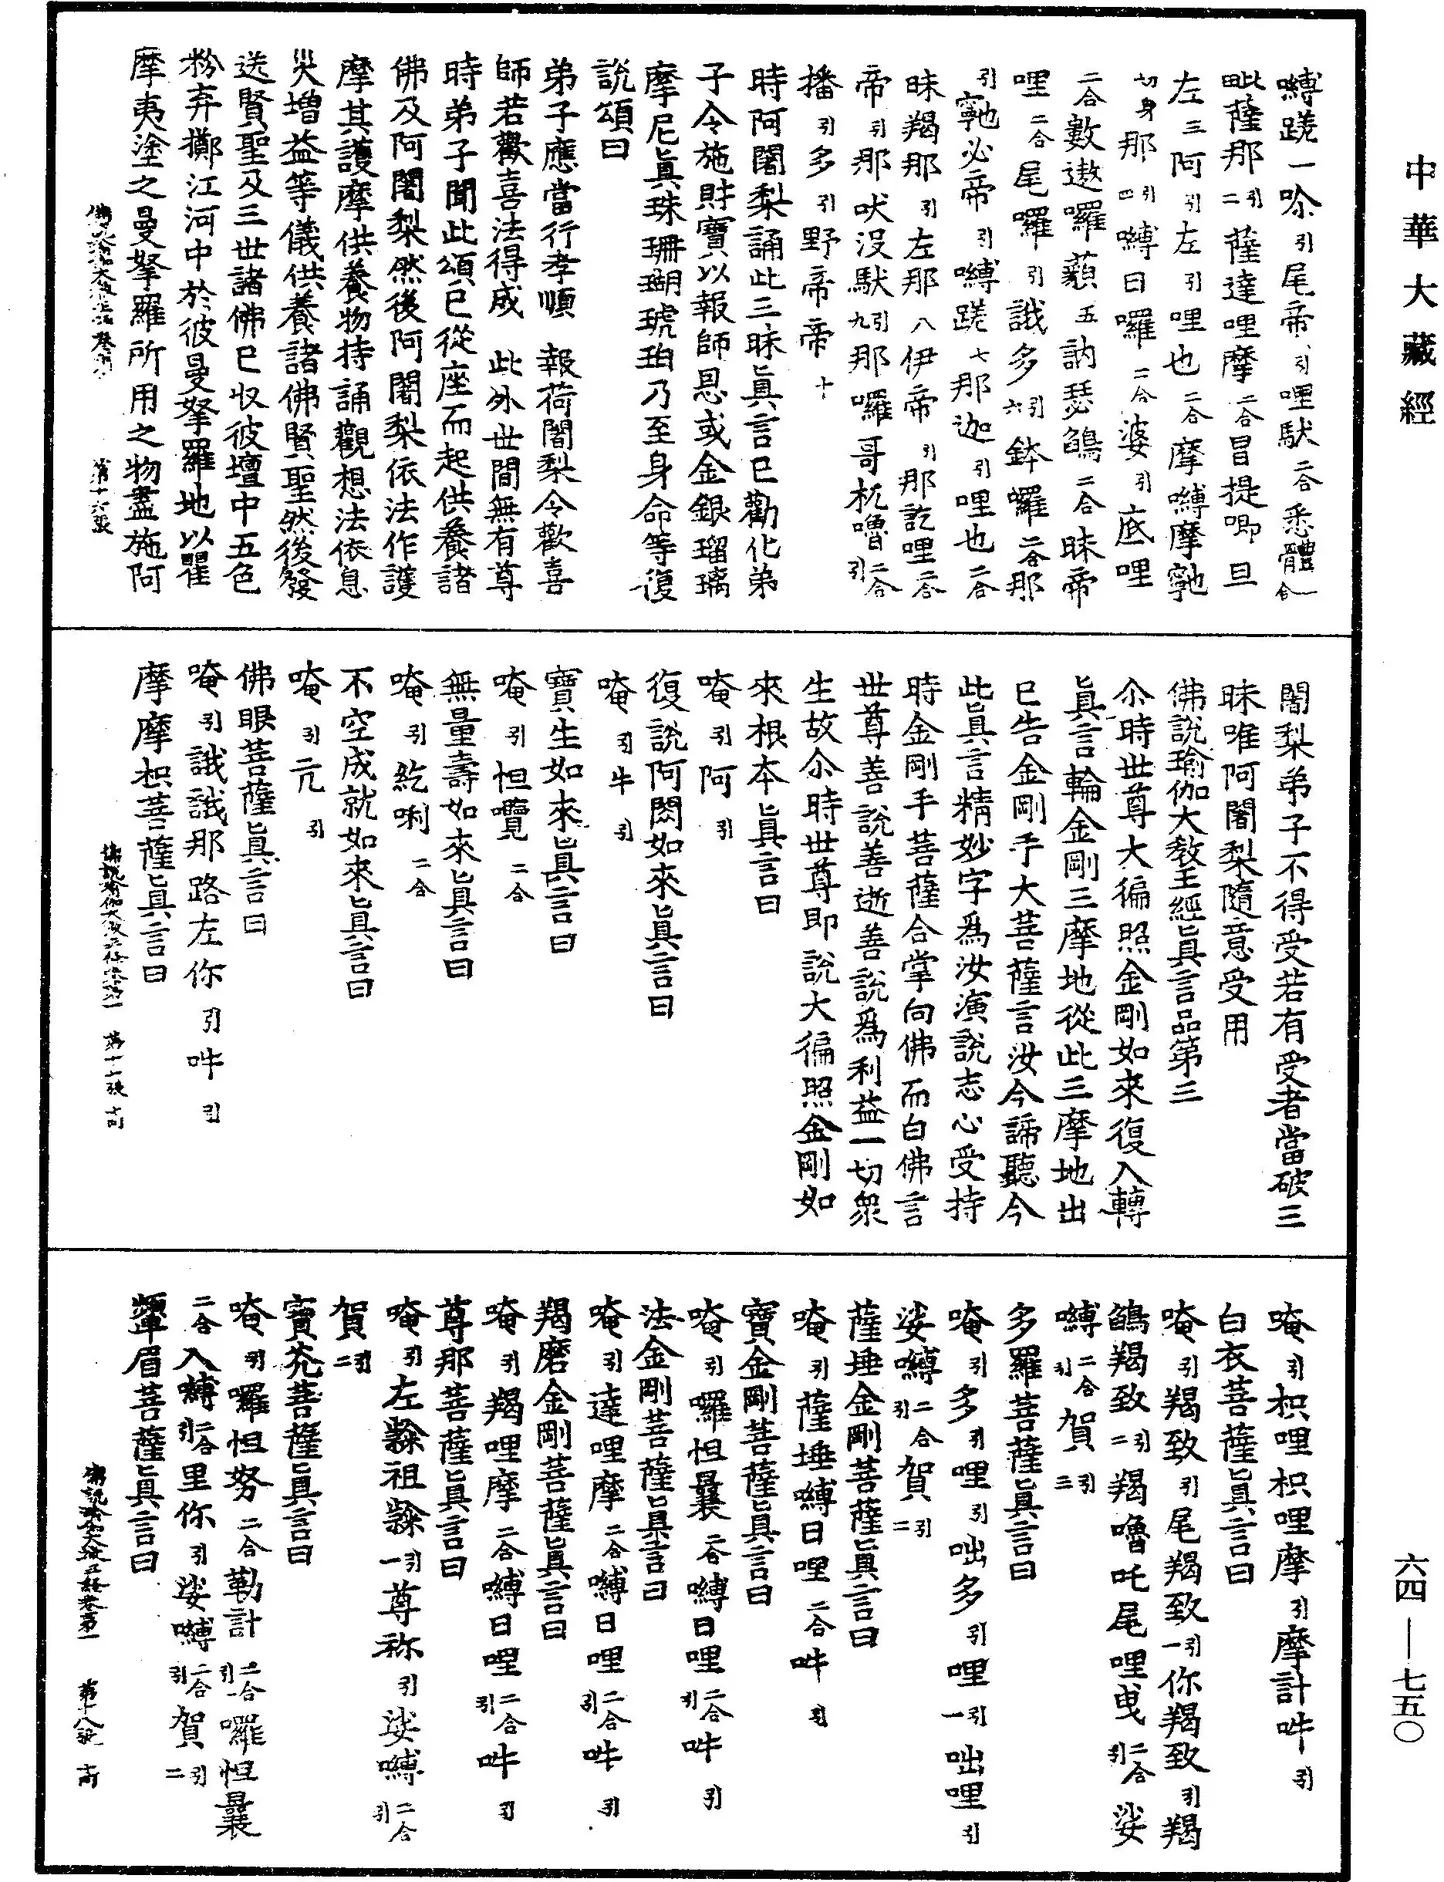 中華大藏經
縛蹉一唋引尾帝引哩馱二合悉體二合
毗薩那引二薩達哩摩二合冒提唧旦
左三阿引左引哩也二合摩縛摩寧
切身那引四縛日囉二合婆引底哩
二合數遨囉蘱五訥瑟鵮二合昧帝
哩二合尾囉引誐多引六鉢囉二合那
引寧必帝引縛蹉七那迦引哩也二合
昧羯那引左那八伊帝引那訖哩二合
帝引那吠没馱引九那囉哥枙嚕二合引
播引多引野帝帝十
時阿闍梨誦此三昧眞言已勸化弟
子令施財寶以報師恩或金銀瑠璃
摩尼眞珠珊瑚琥珀乃至身命等復
說頌曰
弟子應當行孝順 報荷闍梨令歡喜
師若歡喜法得成 此外世間無有尊
時弟子聞此頌已從座而起供養諸
佛及阿闍梨然後阿闍梨依法作護
摩其護摩供養物持誦觀想法依息
災增益等儀供養諸佛賢聖然後發
送賢聖及三世諸佛已收彼壇中五色
粉弃擲江河中於彼曼拏羅地以瞿
摩夷塗之曼拏羅所用之物盡施阿
第十六張
闍梨弟子不得受若有受者當破三
昧唯阿闍梨隨意受用
佛說瑜伽大教王經眞言品第三
尒時世尊大徧照金剛如來復入轉
眞言輪金剛三摩地從此三摩地出
已告金剛手大菩薩言汝今諦聽今
此眞言精妙字爲汝演說志心受持
時金剛手菩薩合掌向佛而白佛言
世尊善說善逝善說爲利益一切衆
生故尒時世尊即說大徧照金剛如
來根本眞言曰
唵引阿引
復說阿閦如來眞言曰
唵引吽引
寶生如來眞言曰
唵引怛𡃤二合
無量壽如來眞言曰
唵引紇唎二合
不空成就如來眞言曰
唵引亢引
佛眼菩薩眞言曰
唵引誐誐那路左你引吽引
摩摩枳菩薩眞言曰
佛說瑜伽大教王經卷第一 第十七張
唵引枳哩枳哩摩引摩計吽引
白衣菩薩眞言曰
唵引羯致引尾羯致引一你羯致引羯
鵮羯致引二羯嚕吒尾哩曳二合引娑
縛二合引賀引三
多羅菩薩眞言曰
唵引多引哩引咄多引哩引一咄哩引
娑縛二合引賀引二
薩埵金剛菩薩眞言曰
唵引薩埵縛日哩二合吽引
寶金剛菩薩眞言曰
唵引囉怛曩二合縛日哩二合引吽引
法金剛菩薩眞言曰
唵引達哩摩二合縛日哩二合引吽引
羯磨金剛菩薩眞言曰
唵引羯哩摩二合縛日哩二合引吽引
尊那菩薩眞言曰
唵引左隸祖隸引一尊祢引娑縛二合引
賀引二
寶光菩薩眞言曰
唵引囉怛努二合勒計二合引一囉怛曩
二合入嚩二合引里你引娑嚩二合引賀引二
顰眉菩薩眞言曰
佛說瑜伽大教王經卷第一 第十八張
六四—七五〇